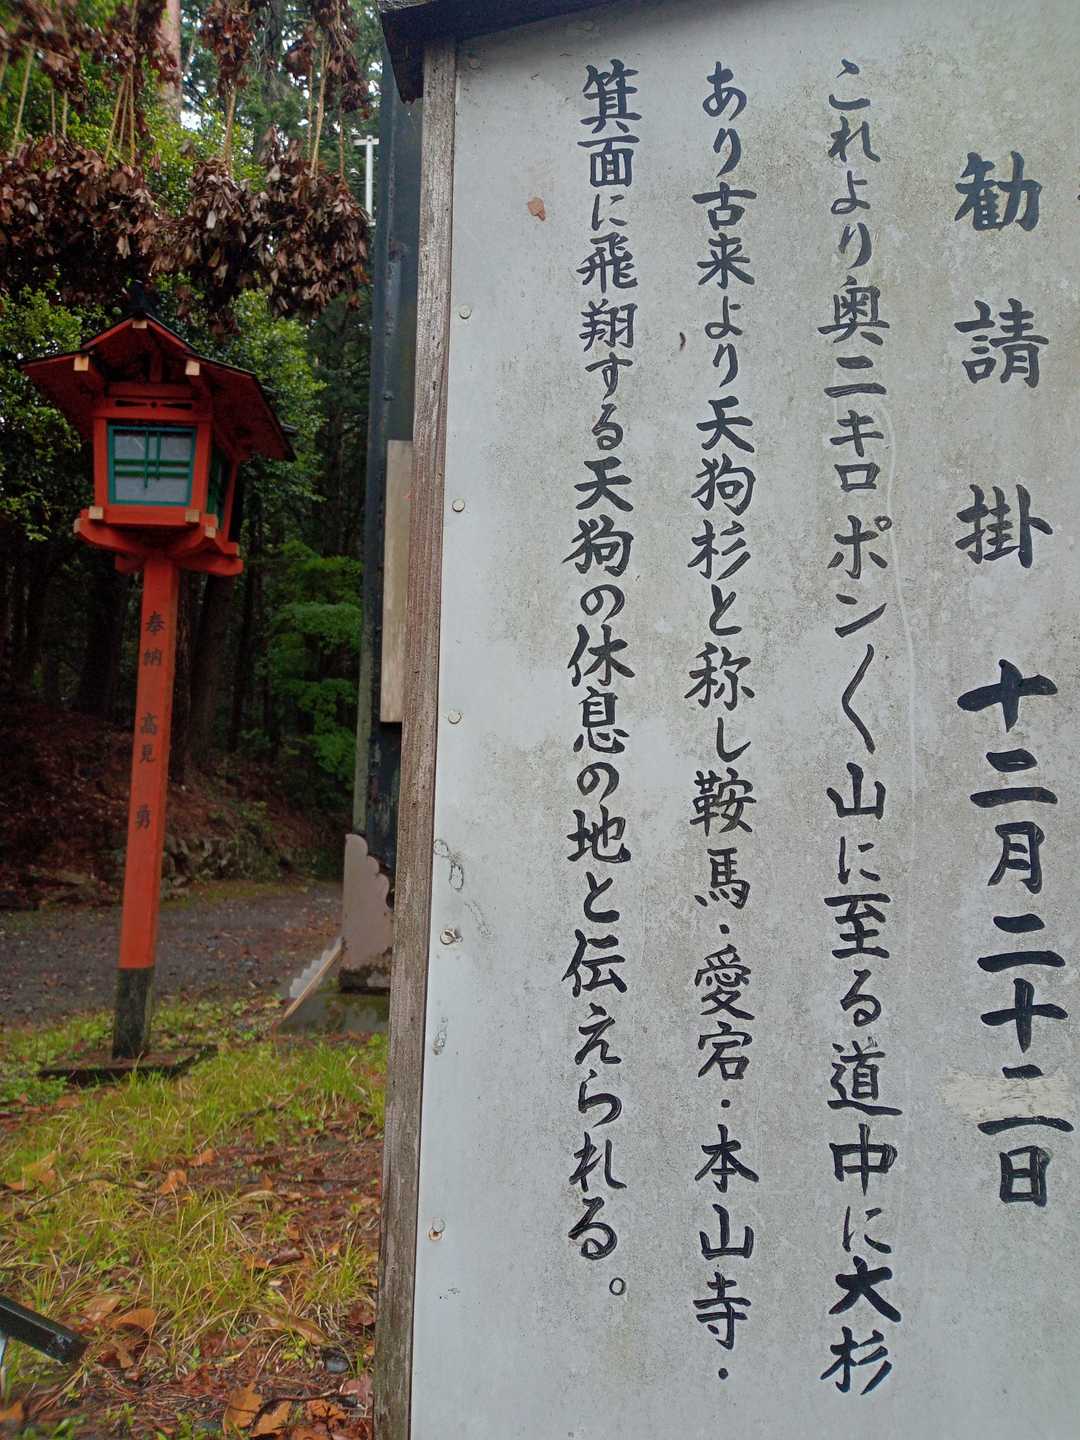 勧請掛 十二月二十二日
これより奥二キロポン〱山に至る道中に大杉
あり古来より天狗杉と称し鞍馬・愛宕・本山寺・
箕面に飛翔する天狗の休息の地と伝えられる。
奉納 高見 勇